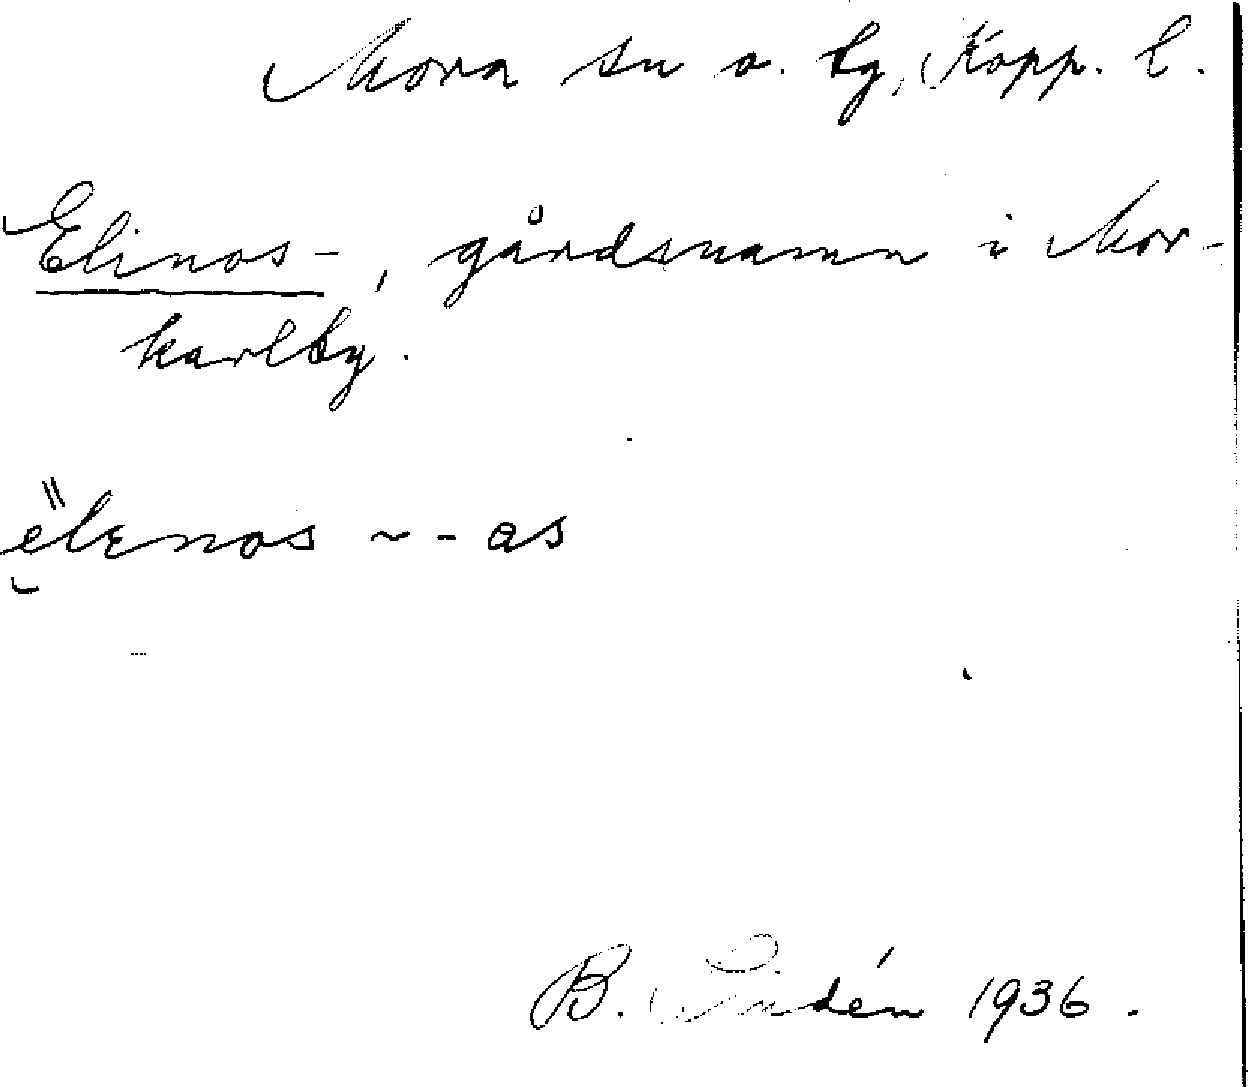 Mora sn o. tg, Kopp. l.
Elinos-, gårdsnamn i Mor-
karlby.
elenos ~ -as
B. Lindén 1936.